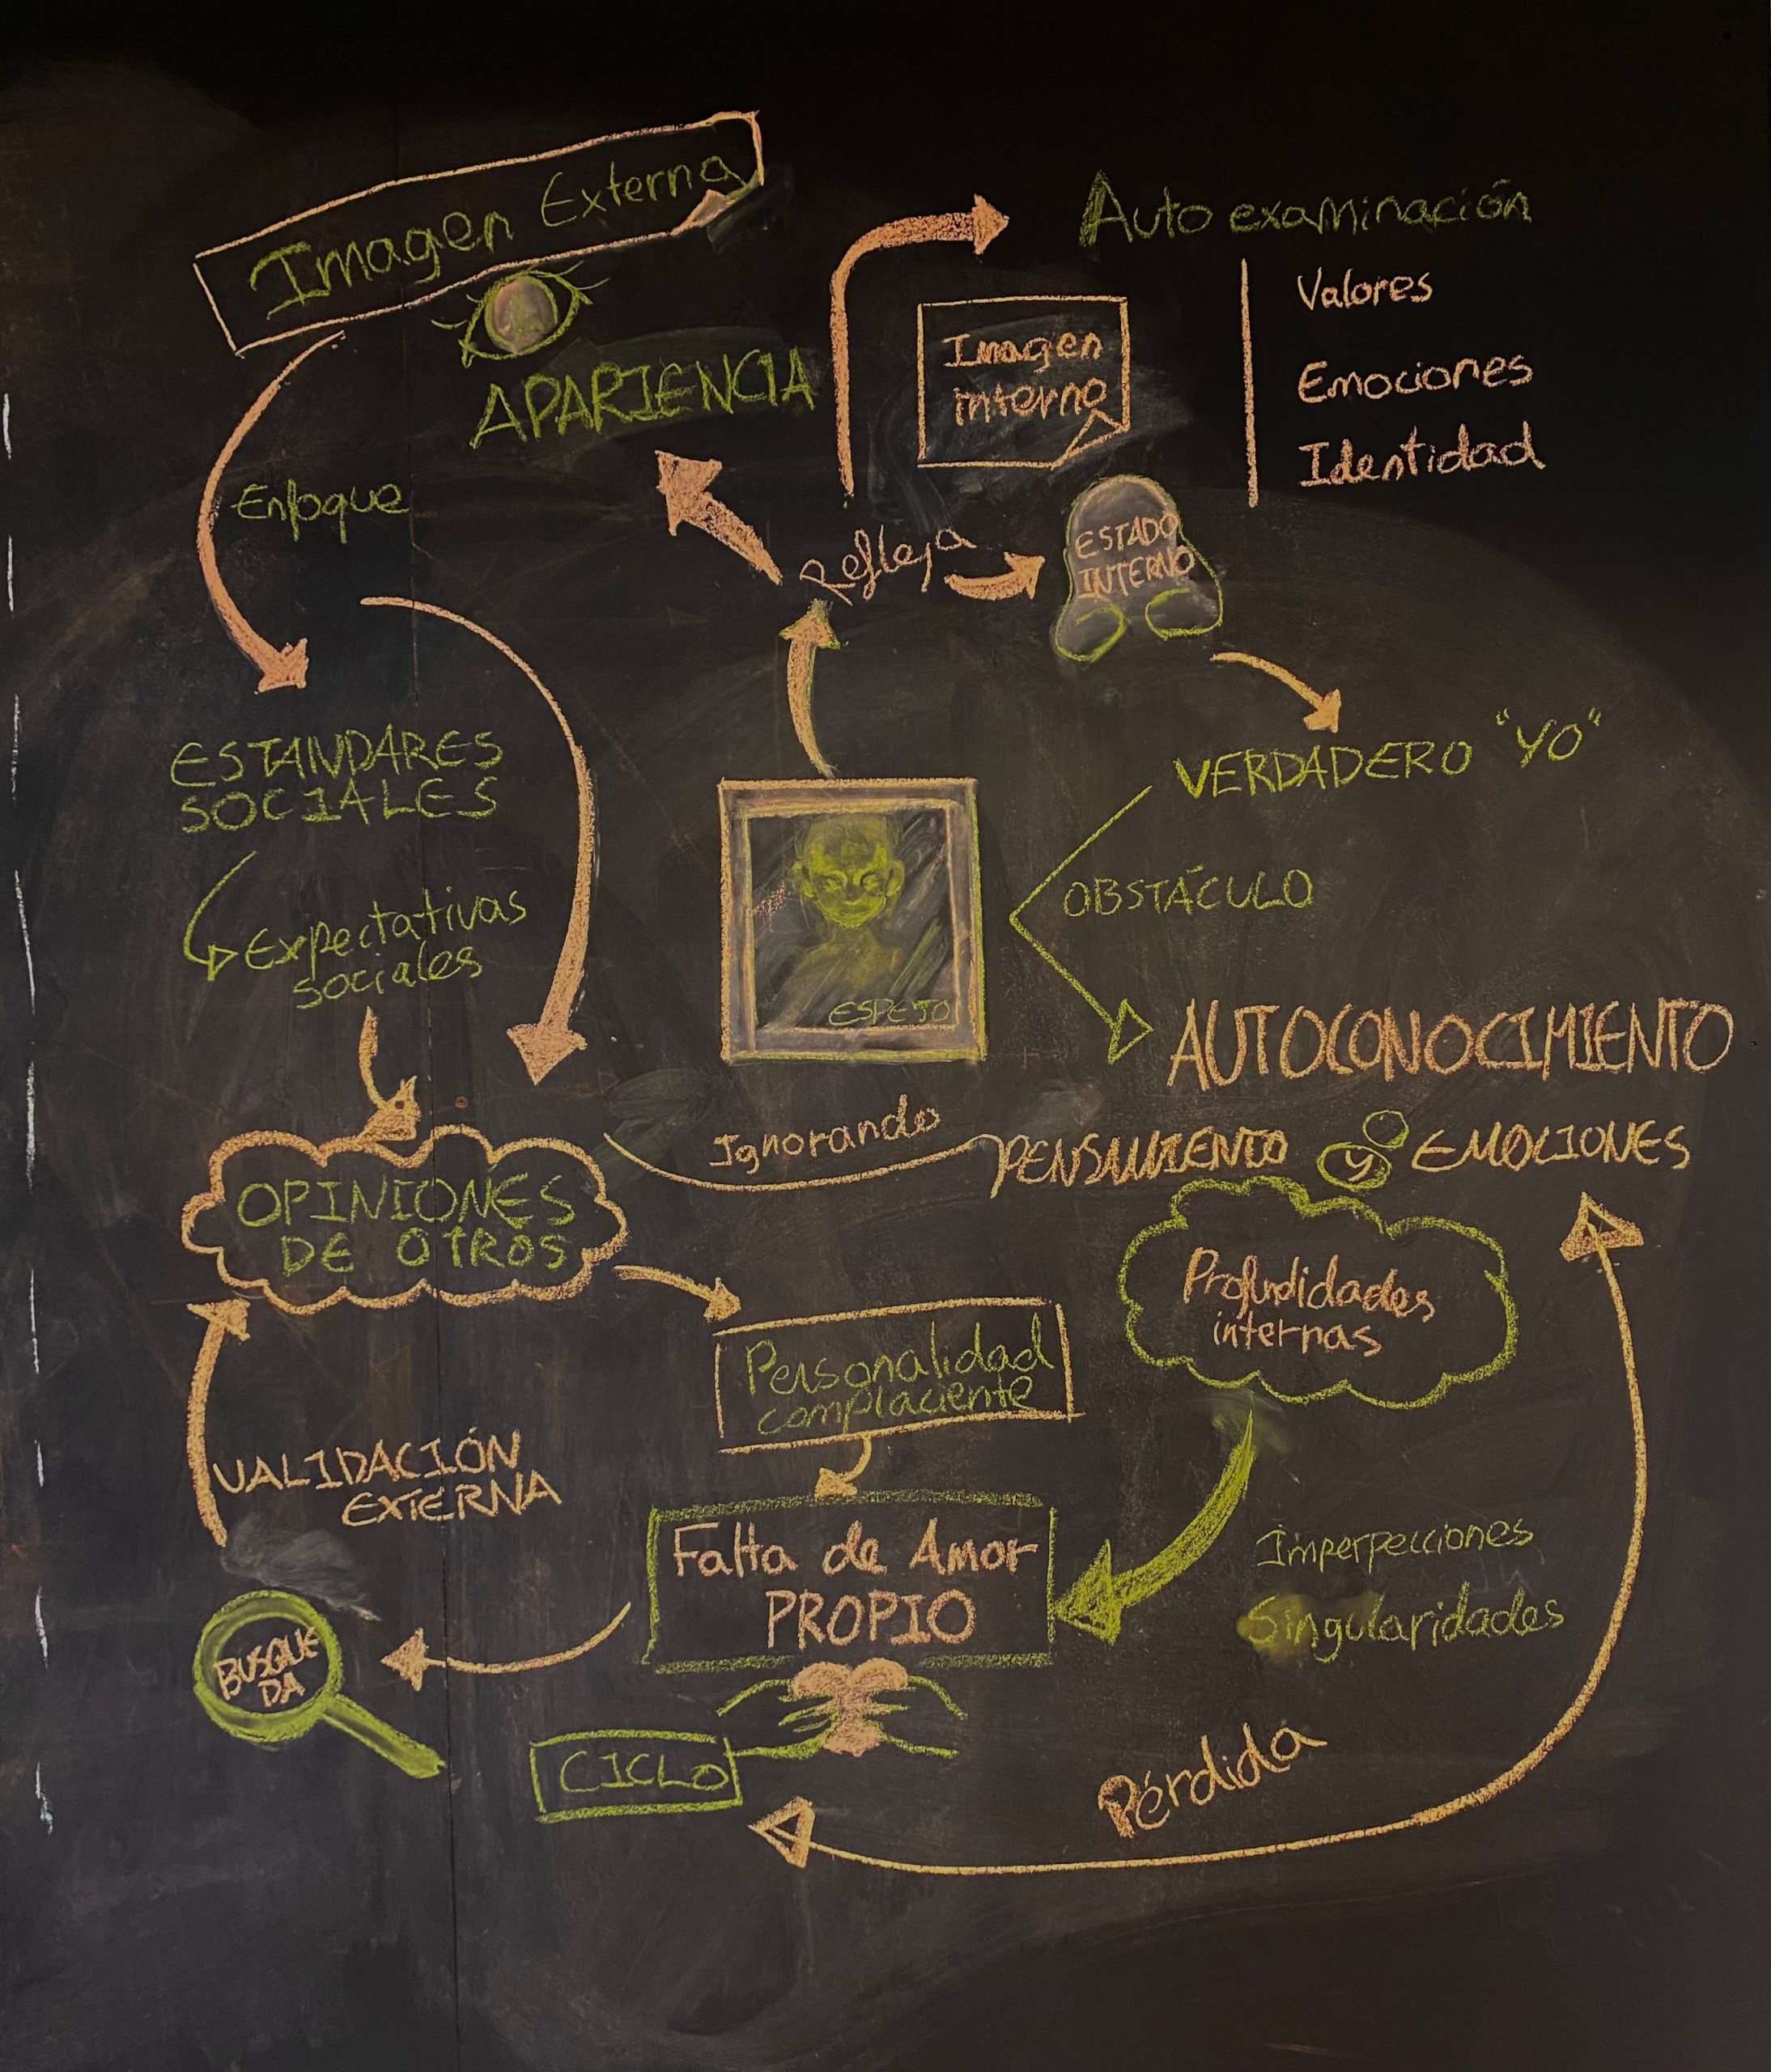 Imagen Externa
APARIENCIA
Enfoque
ESTANDARES
SOCIALES
Expectativas
sociales
Auto examinación
Valores
Emociones
Identidad
Imagen
interno
Refleja
ESTADO
INTERNO
VERDADERO "YO"
OBSTÁCULO
AUTOCONOCIMIENTO
ESPEJO
Ignorando
PENSAMIENTO y EMOCIONES
OPINIONES
DE OTROS
Profundidades
internas
Personalidad
complaciente
VALIDACIÓN
EXTERNA
Falta de Amor
PROPIO
Imperpecciones
Singularidades
BUSQUE
DA
CICLO
Pérdida